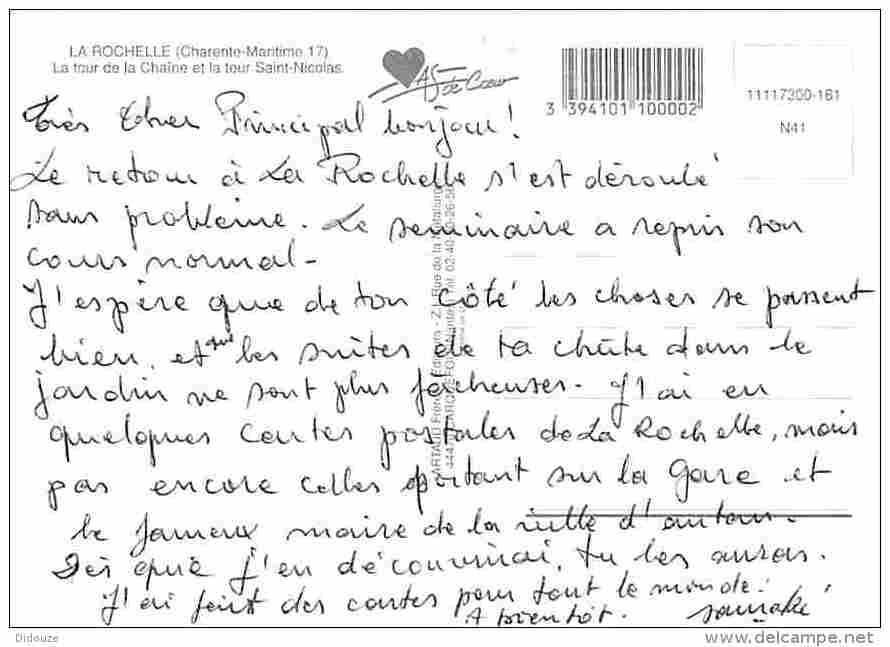 LA ROCHELLE (Charente-Maritime 17)
La tour de la Chaîne et la tour Saint-Nicolas.
AS de Cœur
3 394101 100002
11117300-161
N41
Très Cher Principal bonjour!
Le retour à La Rochelle s'est déroulé
sans problème. Le seminaire a repris son
cours normal-
J'espère que de ton côté les choses se passent
bien, et que les suites de ta chûte dans le
jardin ne sont plus fâcheuses- J'ai eu
quelques cartes postales de La Rochelle, mais
pas encore celles portant sur la Gare et
le fameux maire de la ville d'antan-
Dès que j'en découvrirai, tu les auras.
J'ai fait des cartes pour tout le monde.
A bientôt.
ARTAUD Frères Editeurs - Z.I. Rue de la Métallurgie
Didouze
www.delcampe.net